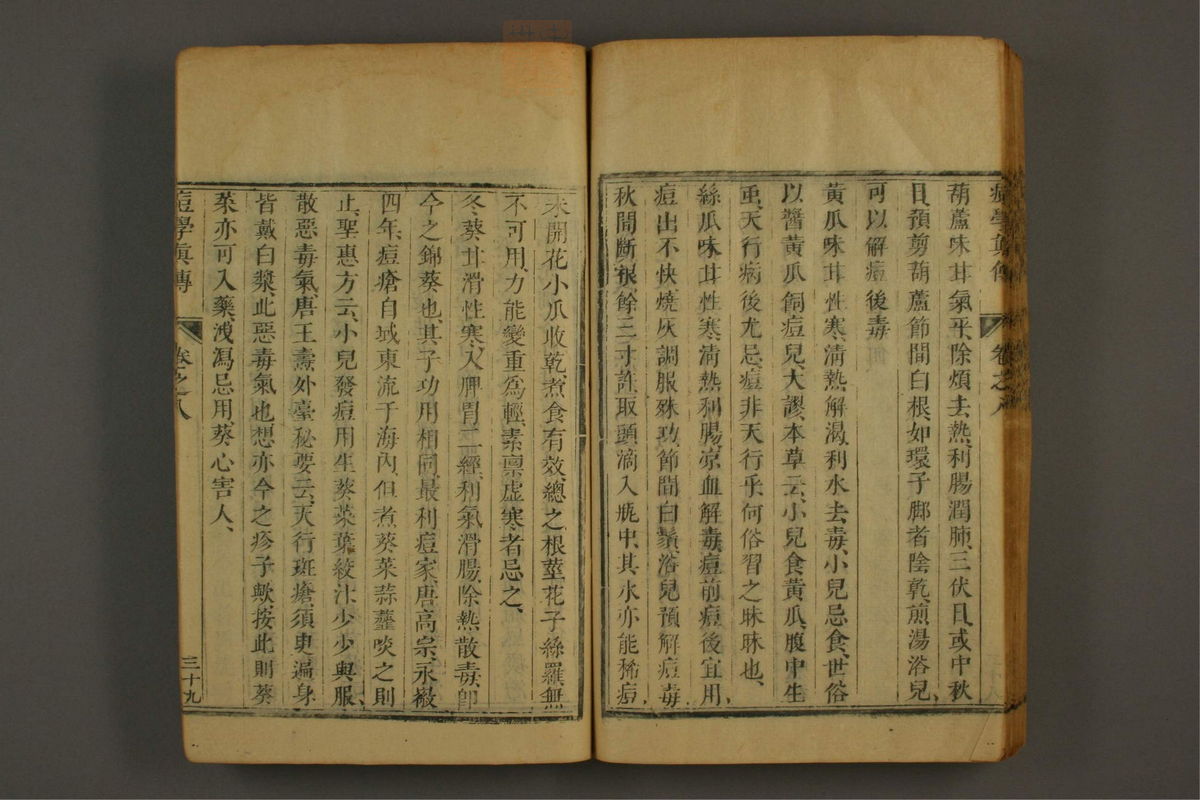 痘學真傳　卷之八
葫蘆味甘氣平、除煩去熱、利腸潤肺、三伏日、或中秋
日、預剪葫蘆節間白根、如環子脚者陰乾、煎湯浴兒、
可以解痘後毒
黃瓜味甘性寒、清熱解渴、利水去毒、小兒忌食、世俗
以醬黃瓜飼痘兒、大謬、本草云、小兒食黃瓜、腹中生
虫、天行病後尤忌、痘非天行乎、何俗習之昧昧也、
絲瓜味甘性寒、清熱利腸、凉血解毒、痘前痘後宜用、
痘出不快、燒灰調服殊功、節間白鬚、浴兒預解痘毒
秋間斷根、餘三寸許、取頭滴入瓶中、其水亦能稀痘
未開花小瓜收乾煮食有效、總之根莖花子絲羅無
不可用、力能變重爲輕、素禀虛寒者忌之、
冬葵甘滑性寒、入脾胃二經、利氣滑腸、除熱散毒、卽
今之錦葵也、其子功用相同、最利痘家、唐高宗永徽
四年、痘瘡自域東流于海內、但煮葵菜蒜虀啖之則
止、聖惠方云、小兒發痘用生葵菜葉絞汁少少與服、
散惡毒氣、唐王燾外臺秘要云、天行斑瘡、須臾遍身
皆戴白漿、此惡毒氣也、想亦今之疹子歟、按此則葵
菜亦可入藥、洩瀉忌用、葵心害人、
痘學眞傳　卷之八　三十九